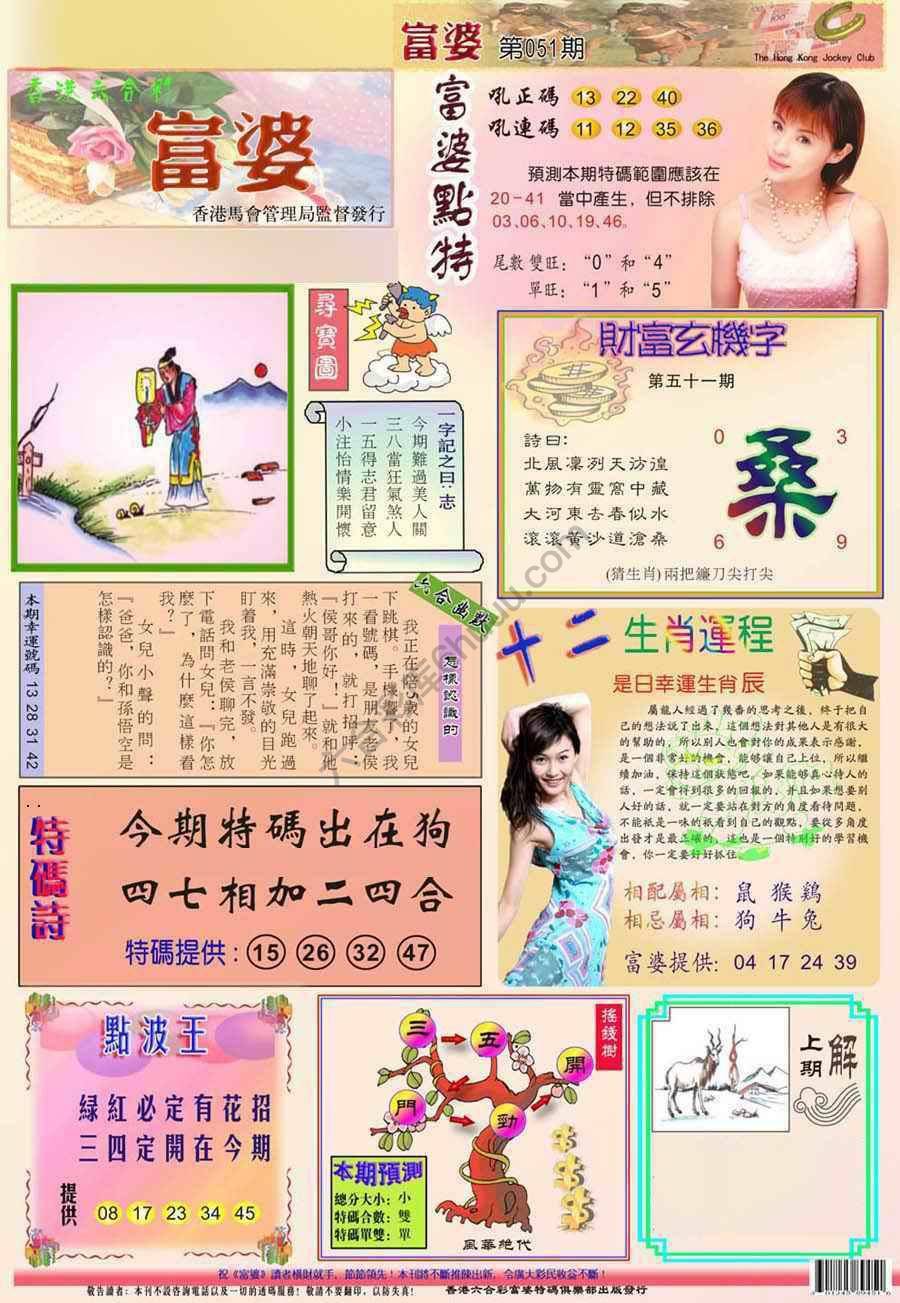 富婆 第051期
The Hong Kong Jockey Club
香港六合彩
富婆
香港馬會管理局監督發行
富婆點特
吼正碼 13 22 40
吼連碼 11 12 35 36
預測本期特碼範圍應該在
20-41 當中產生，但不排除
03、06、10、19、46。
尾數雙旺：“0”和“4”
單旺：“1”和“5”
尋寶圖
一字記之曰：志
今期難過美人關
三八當狂氣煞人
一五得志君留意
小注怡情樂開懷
財富玄機字
第五十一期
詩曰：
北風凜冽天訪徨
萬物有靈窩中藏
大河東去春似水
滾滾黃沙道滄桑
桑
0 3
6 9
(猜生肖)兩把鐮刀尖打尖
六合幽默
怎樣認識的
我正在陪5歲的女兒
下跳棋。手機響了，我
一看號碼，是朋友老侯
打來的，就打招呼：
『侯哥你好！』就和他
熱火朝天地聊了起來。
這時，女兒跑過
來，用充滿崇敬的目光
盯着我，一言不發。
我和老侯聊完，放
下電話問女兒：『你怎
麼了，為什麼這樣看
我？』
女兒小聲的問：
『爸爸，你和孫悟空是
怎樣認識的？』
本期幸運號碼 13 28 31 42
十二生肖運程
是日幸運生肖辰
屬龍人經過了幾番的思考之後，終于把自
己的想法說了出來，這個想法對其他人是有很大
的幫助的，所以別人也會對你的成果表示感謝，
是一個非常好的機會，能够讓自己上位，所以繼
續加油，保持這個狀態吧，如果能够真心待人的
話，一定會得到很多的回報的，并且如果想要別
人好的話，就一定要站在對方的角度看待問題，
不能祇是一味的祇看到自己的觀點，要從多角度
出發才是最正確的，這也是一個特別好的學習機
會，你一定要好好抓住。
相配屬相：鼠 猴 鷄
相忌屬相：狗 牛 兔
富婆提供：04 17 24 39
特碼詩
今期特碼出在狗
四七相加二四合
特碼提供：15 26 32 47
點波王
綠紅必定有花招
三四定開在今期
提供 08 17 23 34 45
搖錢樹
三 五
門 勁 開
本期預測
總分大小：小
特碼合數：雙
特碼單雙：單
風華絕代
上期解
祝《富婆》讀者橫財就手，節節領先！本刊將不斷推陳出新，令廣大彩民收益不斷！
敬告讀者：本刊不設咨詢電話以及一切的透碼服務！敬請不要翻印，以防失真！ 香港六合彩富婆特碼俱樂部出版發行